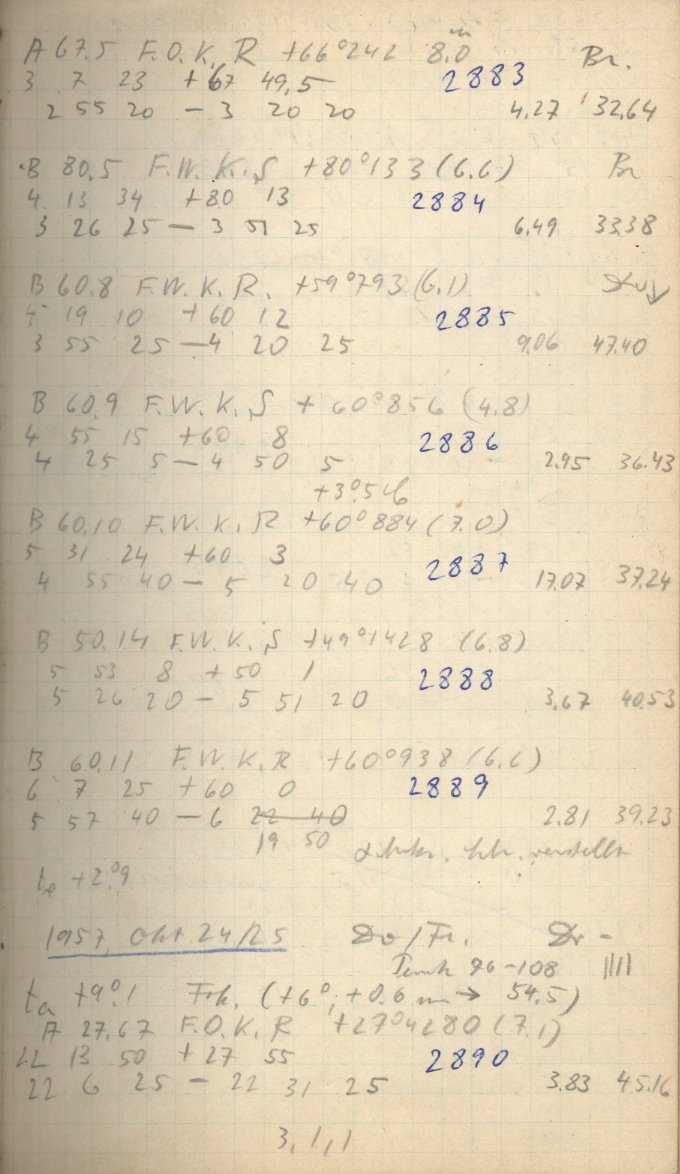 A 67.5 F.O.K. R +66°242 8.0ᵐ Br.
3 7 23 +67 49,5 2883
2 55 20 – 3 20 20 4.27 32.64
B 80,5 F.W.K.S +80°133 (6.6) Br
4 13 34 +80 13 2884
3 26 25 – 3 51 25 6.49 33.38
B 60.8 F.W.K.R. +59°793 (6.1)
4 19 10 +60 12 2885
3 55 25 – 4 20 25 9.06 47.40
B 60.9 F.W.K.S +60°856 (4.8)
4 55 15 +60 8 2886
4 25 5 – 4 50 5 2.95 36.43
+3°.5
B 60.10 F.W.K.R +60°884 (7.0)
5 31 24 +60 3 2887
4 55 40 – 5 20 40 17.07 37.24
B 50.14 F.W.K.S +49°1428 (6.8)
5 53 8 +50 1 2888
5 26 20 – 5 51 20 3.67 40.53
B 60.11 F.W.K.R +60°938 (6.6)
6 7 25 +60 0 2889
5 57 40 – 6 22 40 2.81 39.23
19 50 verstellt
te +2°.9
1957, Okt 24/25 Do/Fr.
96–108 ||||
ta +9°.1 Frk. (+6°, +0.6 m → 54.5)
A 27.67 F.O.K.R +27°4280 (7.1)
22 13 50 +27 55 2890
22 6 25 – 22 31 25 3.83 45.16
3, 1, 1